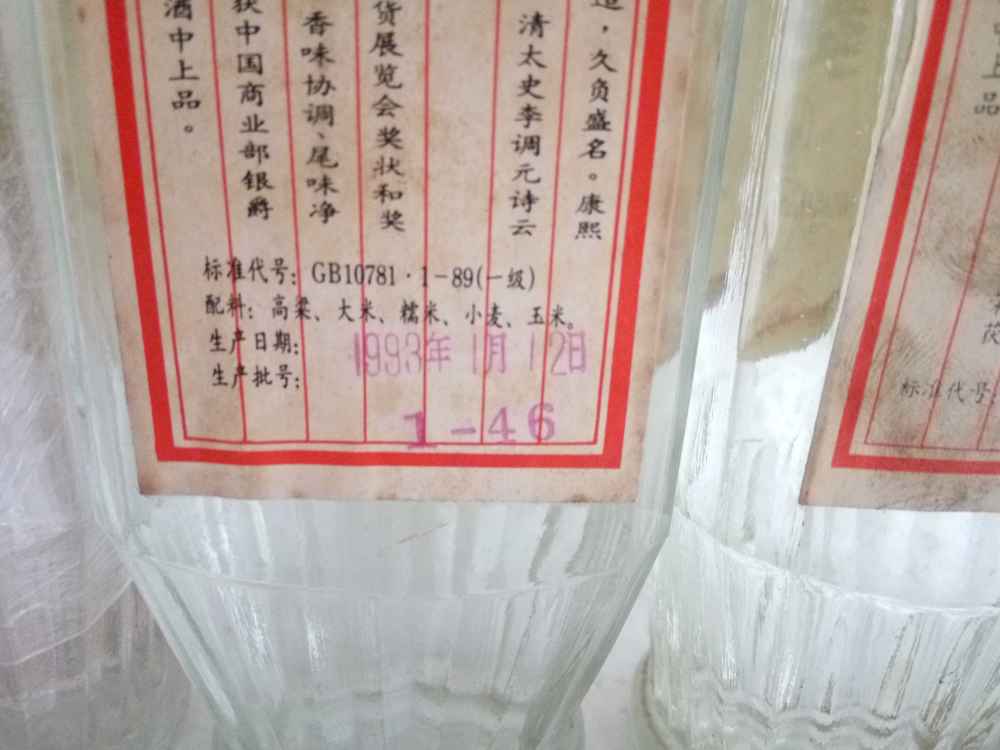 ，久负盛名。康熙
清太史李调元诗云
货展览会奖状和奖
香味协调、尾味净
获中国商业部银爵
酒中上品。
标准代号：GB10781·1-89(一级)
配料：高粱、大米、糯米、小麦、玉米。
生产日期：1993年1月12日
生产批号：1-46
上品
茯
标准代号: